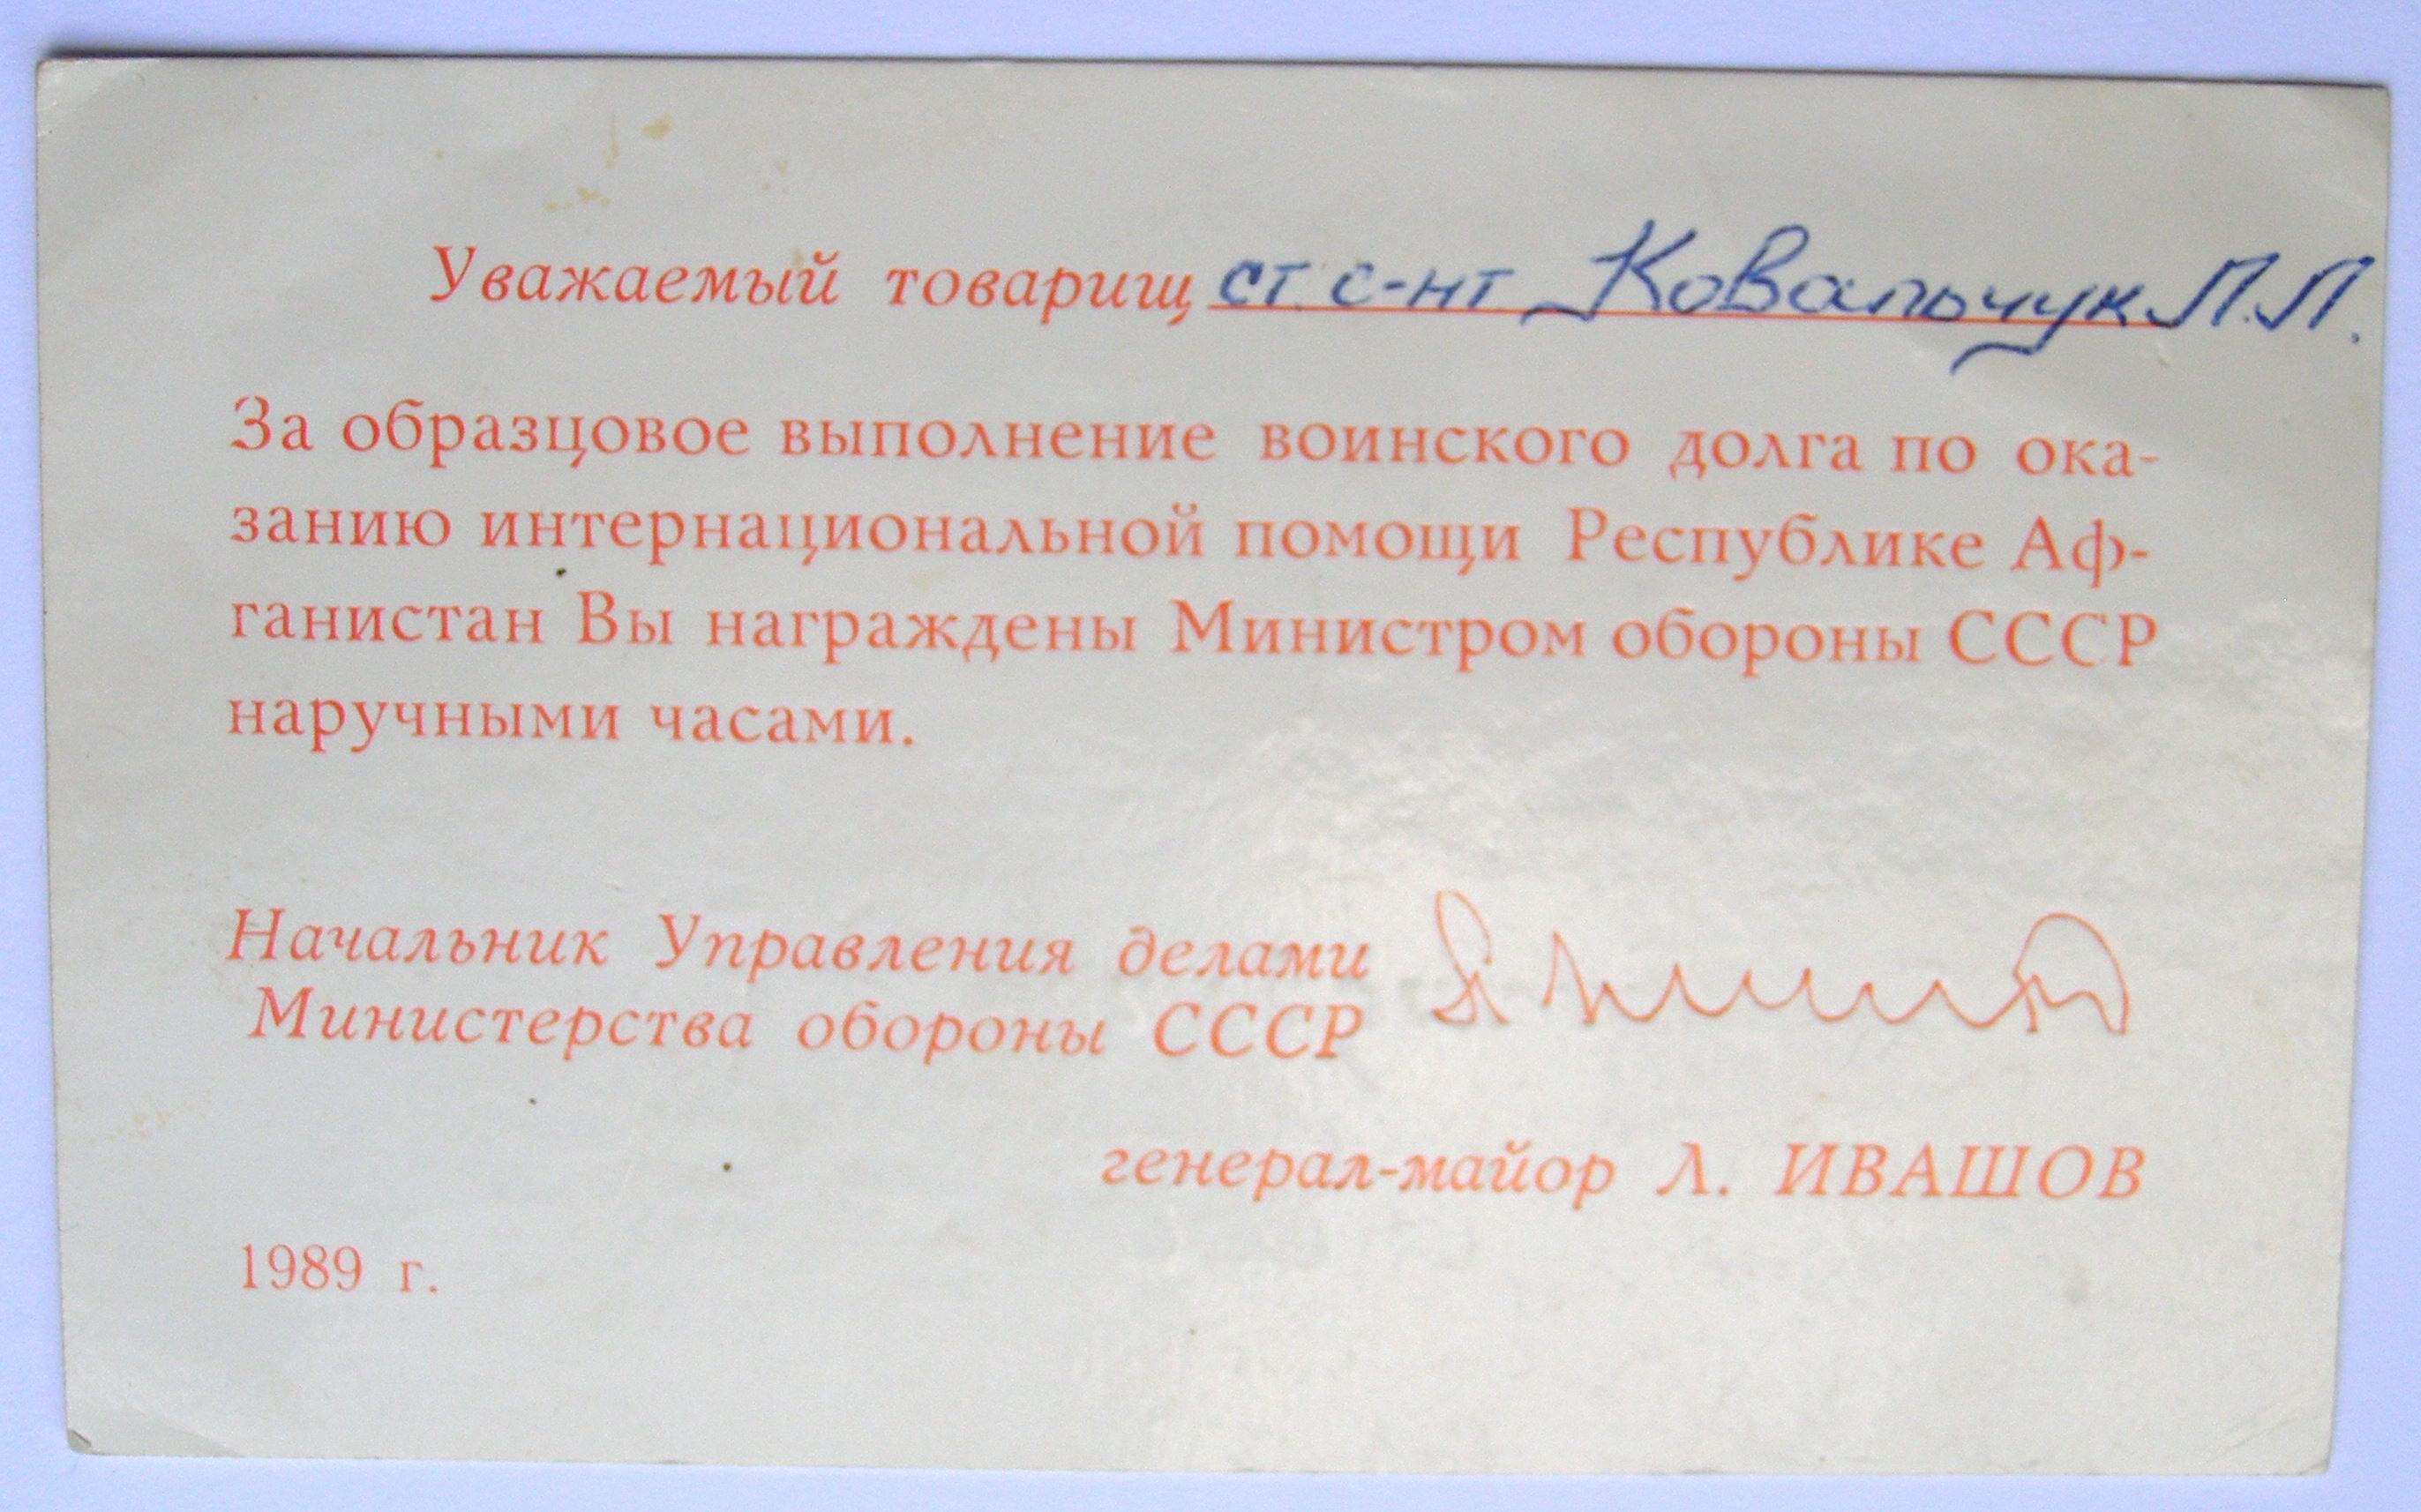 Уважаемый товарищ ст. с-нт Ковальчук П.П.
За образцовое выполнение воинского долга по ока-
занию интернациональной помощи Республике Аф-
ганистан Вы награждены Министром обороны СССР
наручными часами.
Начальник Управления делами
Министерства обороны СССР
генерал-майор Л. ИВАШОВ
1989 г.